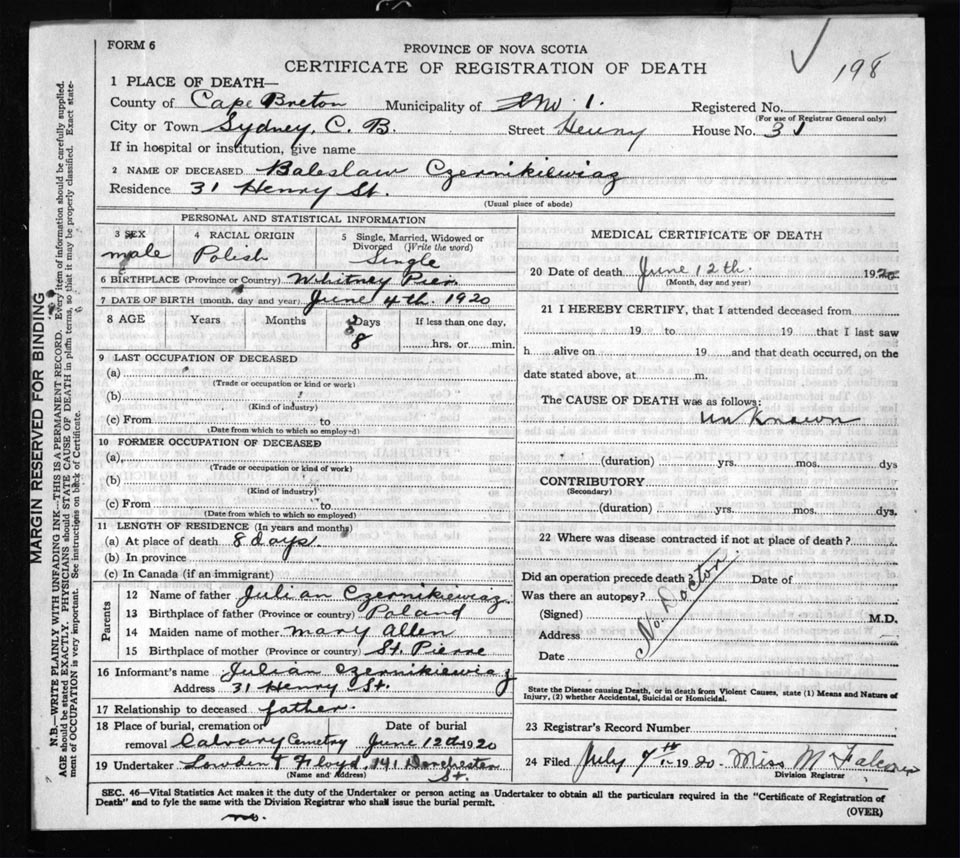 FORM 6
198
PROVINCE OF NOVA SCOTIA
CERTIFICATE OF REGISTRATION OF DEATH
1 PLACE OF DEATH—
County of Cape Breton Municipality of 1. Registered No.
(For use of Registrar General only)
City or Town Sydney, C. B. Street Henry House No. 31
If in hospital or institution, give name
2 NAME OF DECEASED Baleslaw Czernikiewiaz
Residence 31 Henry St.
(Usual place of abode)
PERSONAL AND STATISTICAL INFORMATION
3 SEX male
4 RACIAL ORIGIN Polish
5 Single, Married, Widowed or Divorced (Write the word) Single
6 BIRTHPLACE (Province or Country) Whitney Pier
7 DATE OF BIRTH (month, day and year) June 4th. 1920
8 AGE Years Months Days If less than one day,
8 hrs. or min.
9 LAST OCCUPATION OF DECEASED
(a)
(Trade or occupation or kind or work)
(b)
(Kind of industry)
(c) From to
(Date from which to which so employed)
10 FORMER OCCUPATION OF DECEASED
(a)
(Trade or occupation or kind of work)
(b)
(Kind of industry)
(c) From to
(Date from which to which so employed)
11 LENGTH OF RESIDENCE (In years and months)
(a) At place of death 8 days.
(b) In province
(c) In Canada (if an immigrant)
Parents
12 Name of father Julian Czernikiewiaz
13 Birthplace of father (Province or country) Poland
14 Maiden name of mother Mary Allen
15 Birthplace of mother (Province or country) St. Pierre
16 Informant's name Julian Czernikiewiaz
Address 31 Henry St.
17 Relationship to deceased father.
18 Place of burial, cremation or Date of burial
removal Calvary Cemetry June 12th 1920
19 Undertaker Lowden & Floyd. 141 Dorchester St.
(Name and Address)
MEDICAL CERTIFICATE OF DEATH
20 Date of death June 12th. 1920
(Month, day and year)
21 I HEREBY CERTIFY, that I attended deceased from
19 to 19 that I last saw
h alive on 19 and that death occurred, on the
date stated above, at m.
The CAUSE OF DEATH was as follows:
unknown
(duration) yrs. mos. dys
CONTRIBUTORY
(Secondary)
(duration) yrs. mos. dys.
22 Where was disease contracted if not at place of death?
Did an operation precede death? Date of
Was there an autopsy?
(Signed) M.D.
Address
Date
No. Doctor
State the Disease causing Death, or in death from Violent Causes, state (1) Means and Nature of
Injury, (2) whether Accidental, Suicidal or Homicidal.
23 Registrar's Record Number
24 Filed July 7th 1920 Miss M
Division Registrar
SEC. 46—Vital Statistics Act makes it the duty of the Undertaker or person acting as Undertaker to obtain all the particulars required in the "Certificate of Registration of
Death" and to fyle the same with the Division Registrar who shall issue the burial permit.
(OVER)
no.
MARGIN RESERVED FOR BINDING
N.B.—WRITE PLAINLY WITH UNFADING INK—THIS IS A PERMANENT RECORD. Every item of information should be carefully supplied.
AGE should be stated EXACTLY. PHYSICIANS should STATE CAUSE OF DEATH in plain terms, so that it may be properly classified. Exact statement
of OCCUPATION is very important. See instructions on back of Certificate.